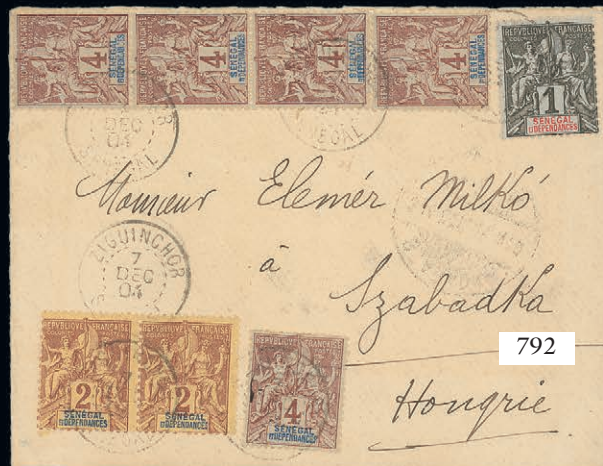 4 SÉNÉGAL ET DÉPENDANCES
4 SÉNÉGAL ET DÉPENDANCES
4 SÉNÉGAL ET DÉPENDANCES
4 SÉNÉGAL ET DÉPENDANCES
REPVBLIQVE FRANÇAISE
1
SENEGAL
ET DÉPENDANCES
DEC
04
SENEGAL
Monsieur Elemér Milkó
ZIGUINCHOR
7
DEC
04
à
Szabadka
792
Hongrie
REPVBLIQVE FRANÇAISE
2
SÉNÉGAL
ET DÉPENDANCES
REPVBLIQVE FRANÇAISE
2
SÉNÉGAL
ET DÉPENDANCES
REPVBLIQVE FRANÇAISE
4
SÉNÉGAL
ET DÉPENDANCES